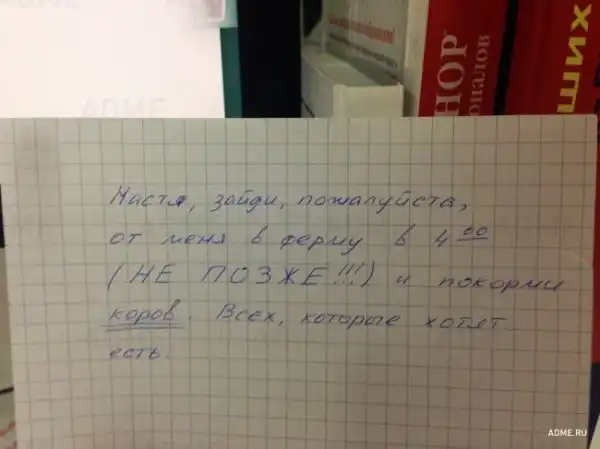 ADME
НОР
оналов
ХИЩ
ADME
Настя, зайди, пожалуйста,
от меня в ферму в 4 00
(НЕ ПОЗЖЕ!!!) и покорми
коров. Всех, которые хотят
есть.
ADME.RU